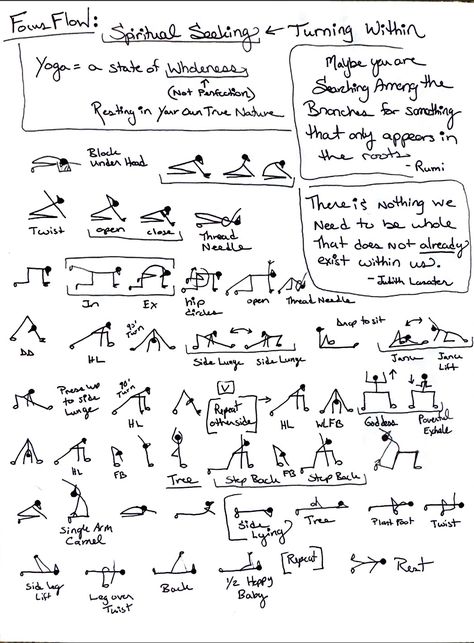 Focus Flow: Spiritual Seeking ← Turning Within
Yoga = a state of Wholeness
(Not Perfection)
Resting in Your Own True Nature
Maybe you are
Searching Among the
Branches for something
that only appears in
the roots
- Rumi
Block
under Head
There is nothing we
Need to be whole
That does not already
exist within us.
- Judith Lasater
Twist
open
close
Thread
Needle
In
Ex
hip
circles
open
Thread Needle
DD
HL
90°
Turn
Side Lunge
Side Lunge
Drop to sit
Janu
Janu
Lift
Press up
to side
Lunge
90°
Turn
HL
V
Repeat
other side
HL
WLFB
Goddess
Powerful
Exhale
HL
FB
Tree
Step Back
FB
Step Back
Single Arm
Camel
Side
Lying
Tree
Plant Foot
Twist
Side Leg
Lift
Leg over
Twist
Back
1/2 Happy
Baby
Repeat
Rest